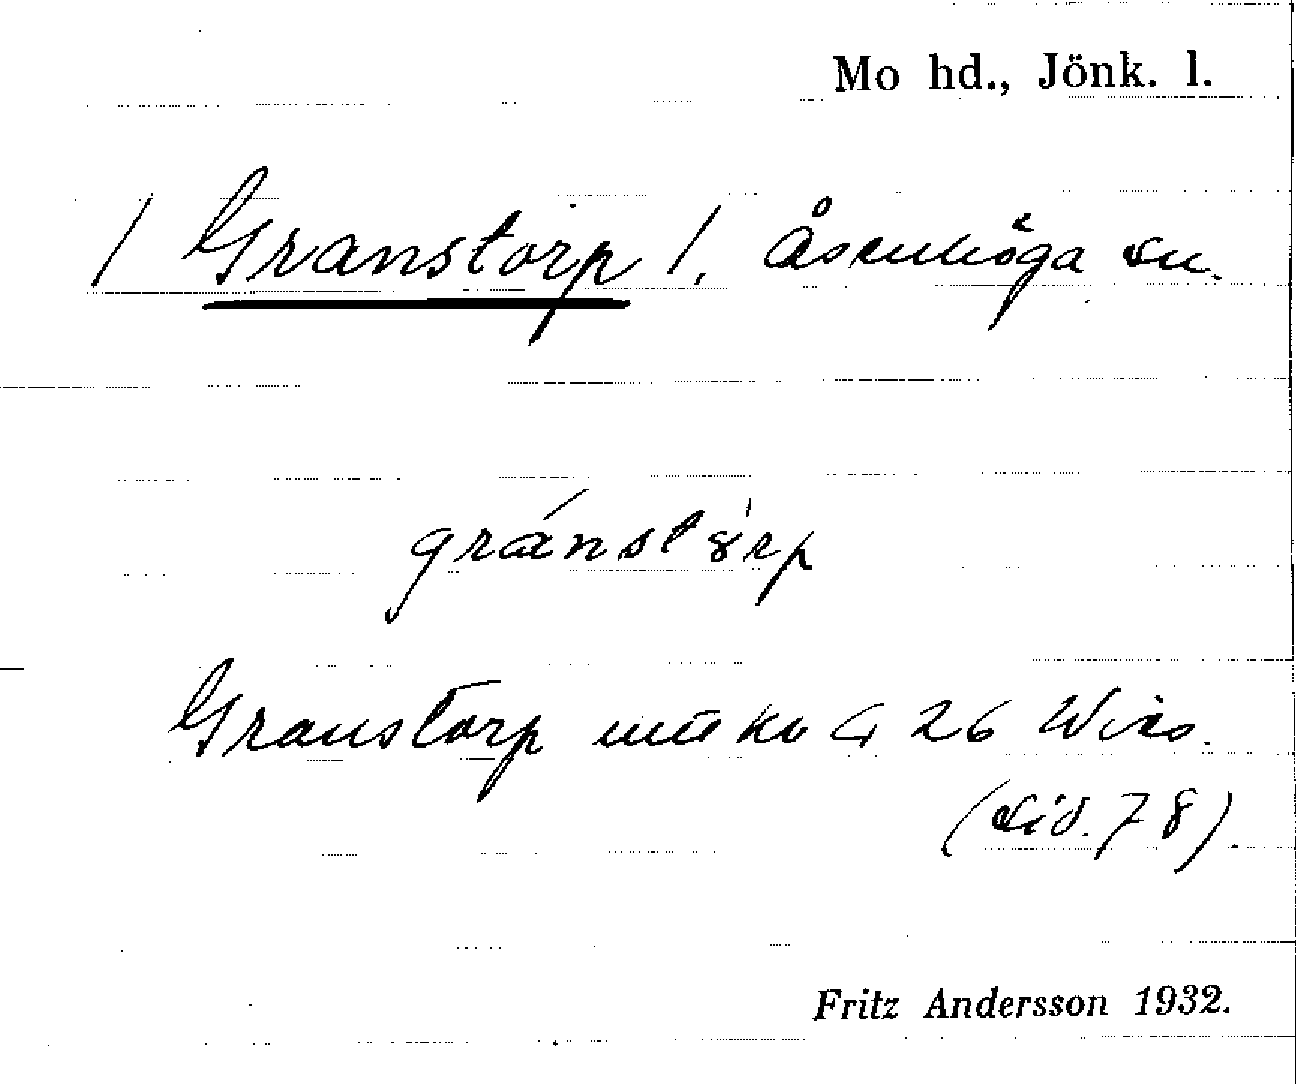 Mo hd., Jönk. l.
/ Granstorp /. Åsenhöga sn.
gránstòrp
Granstorp
26
(sid. 78).
Fritz Andersson 1932.